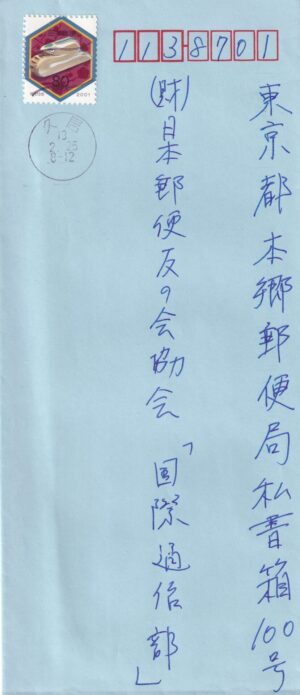 113-8701
東京都本郷郵便局私書箱100号
(財)日本郵便友の会協会「国際通信部」
80
2001
13
2.25
8-12